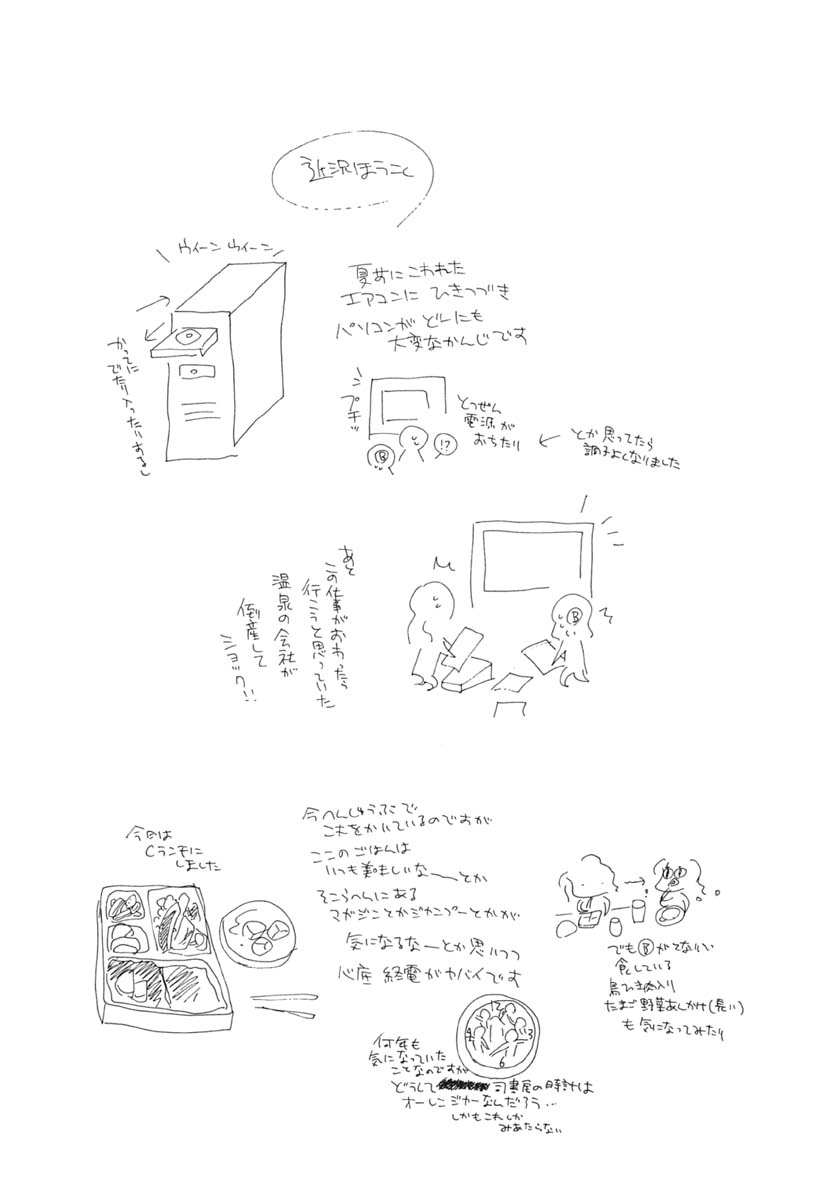 近況ほうこく
ウィーン ウィーン
かってに
でたり入ったりするし
夏前にこわれた
エアコンに ひきつづき
パソコンが どーにも
大変なかんじです
プチッ
B
!?
とつぜん
電源が
おちたり
とか思ってたら
調子よくなりました
B
あと
この仕事がおわったら
行こうと思っていた
温泉の会社が
倒産して
ショック!!
今回は
Cランチに
しました
今へんしゅうぶで
これをかいているのですが
ここのごはんは
いつも美味しいなーーとか
そこらへんにある
マガジンとかジャンプーとかが
気になるなーとか思いつつ
心底 終電がヤバイです
でもBが
食している
鳥ひき肉入り
たまご野菜あんかけ(長い)
も気になってみたり
12
3
6
何年も
気になっていた
ことなのですが
どうして
の時計は
オーレンジャーなんだろう…
しかもこれしか
みあたらない